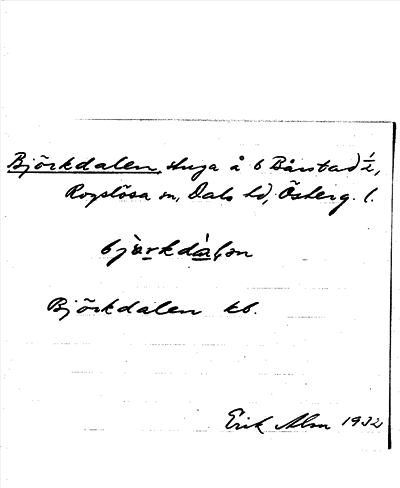 Björkdalen, stuga å 6 Bårstad ½,
Rogslösa sn, Dals hd, Österg. l.
Björkdalen kb.
Erik Alm 1932